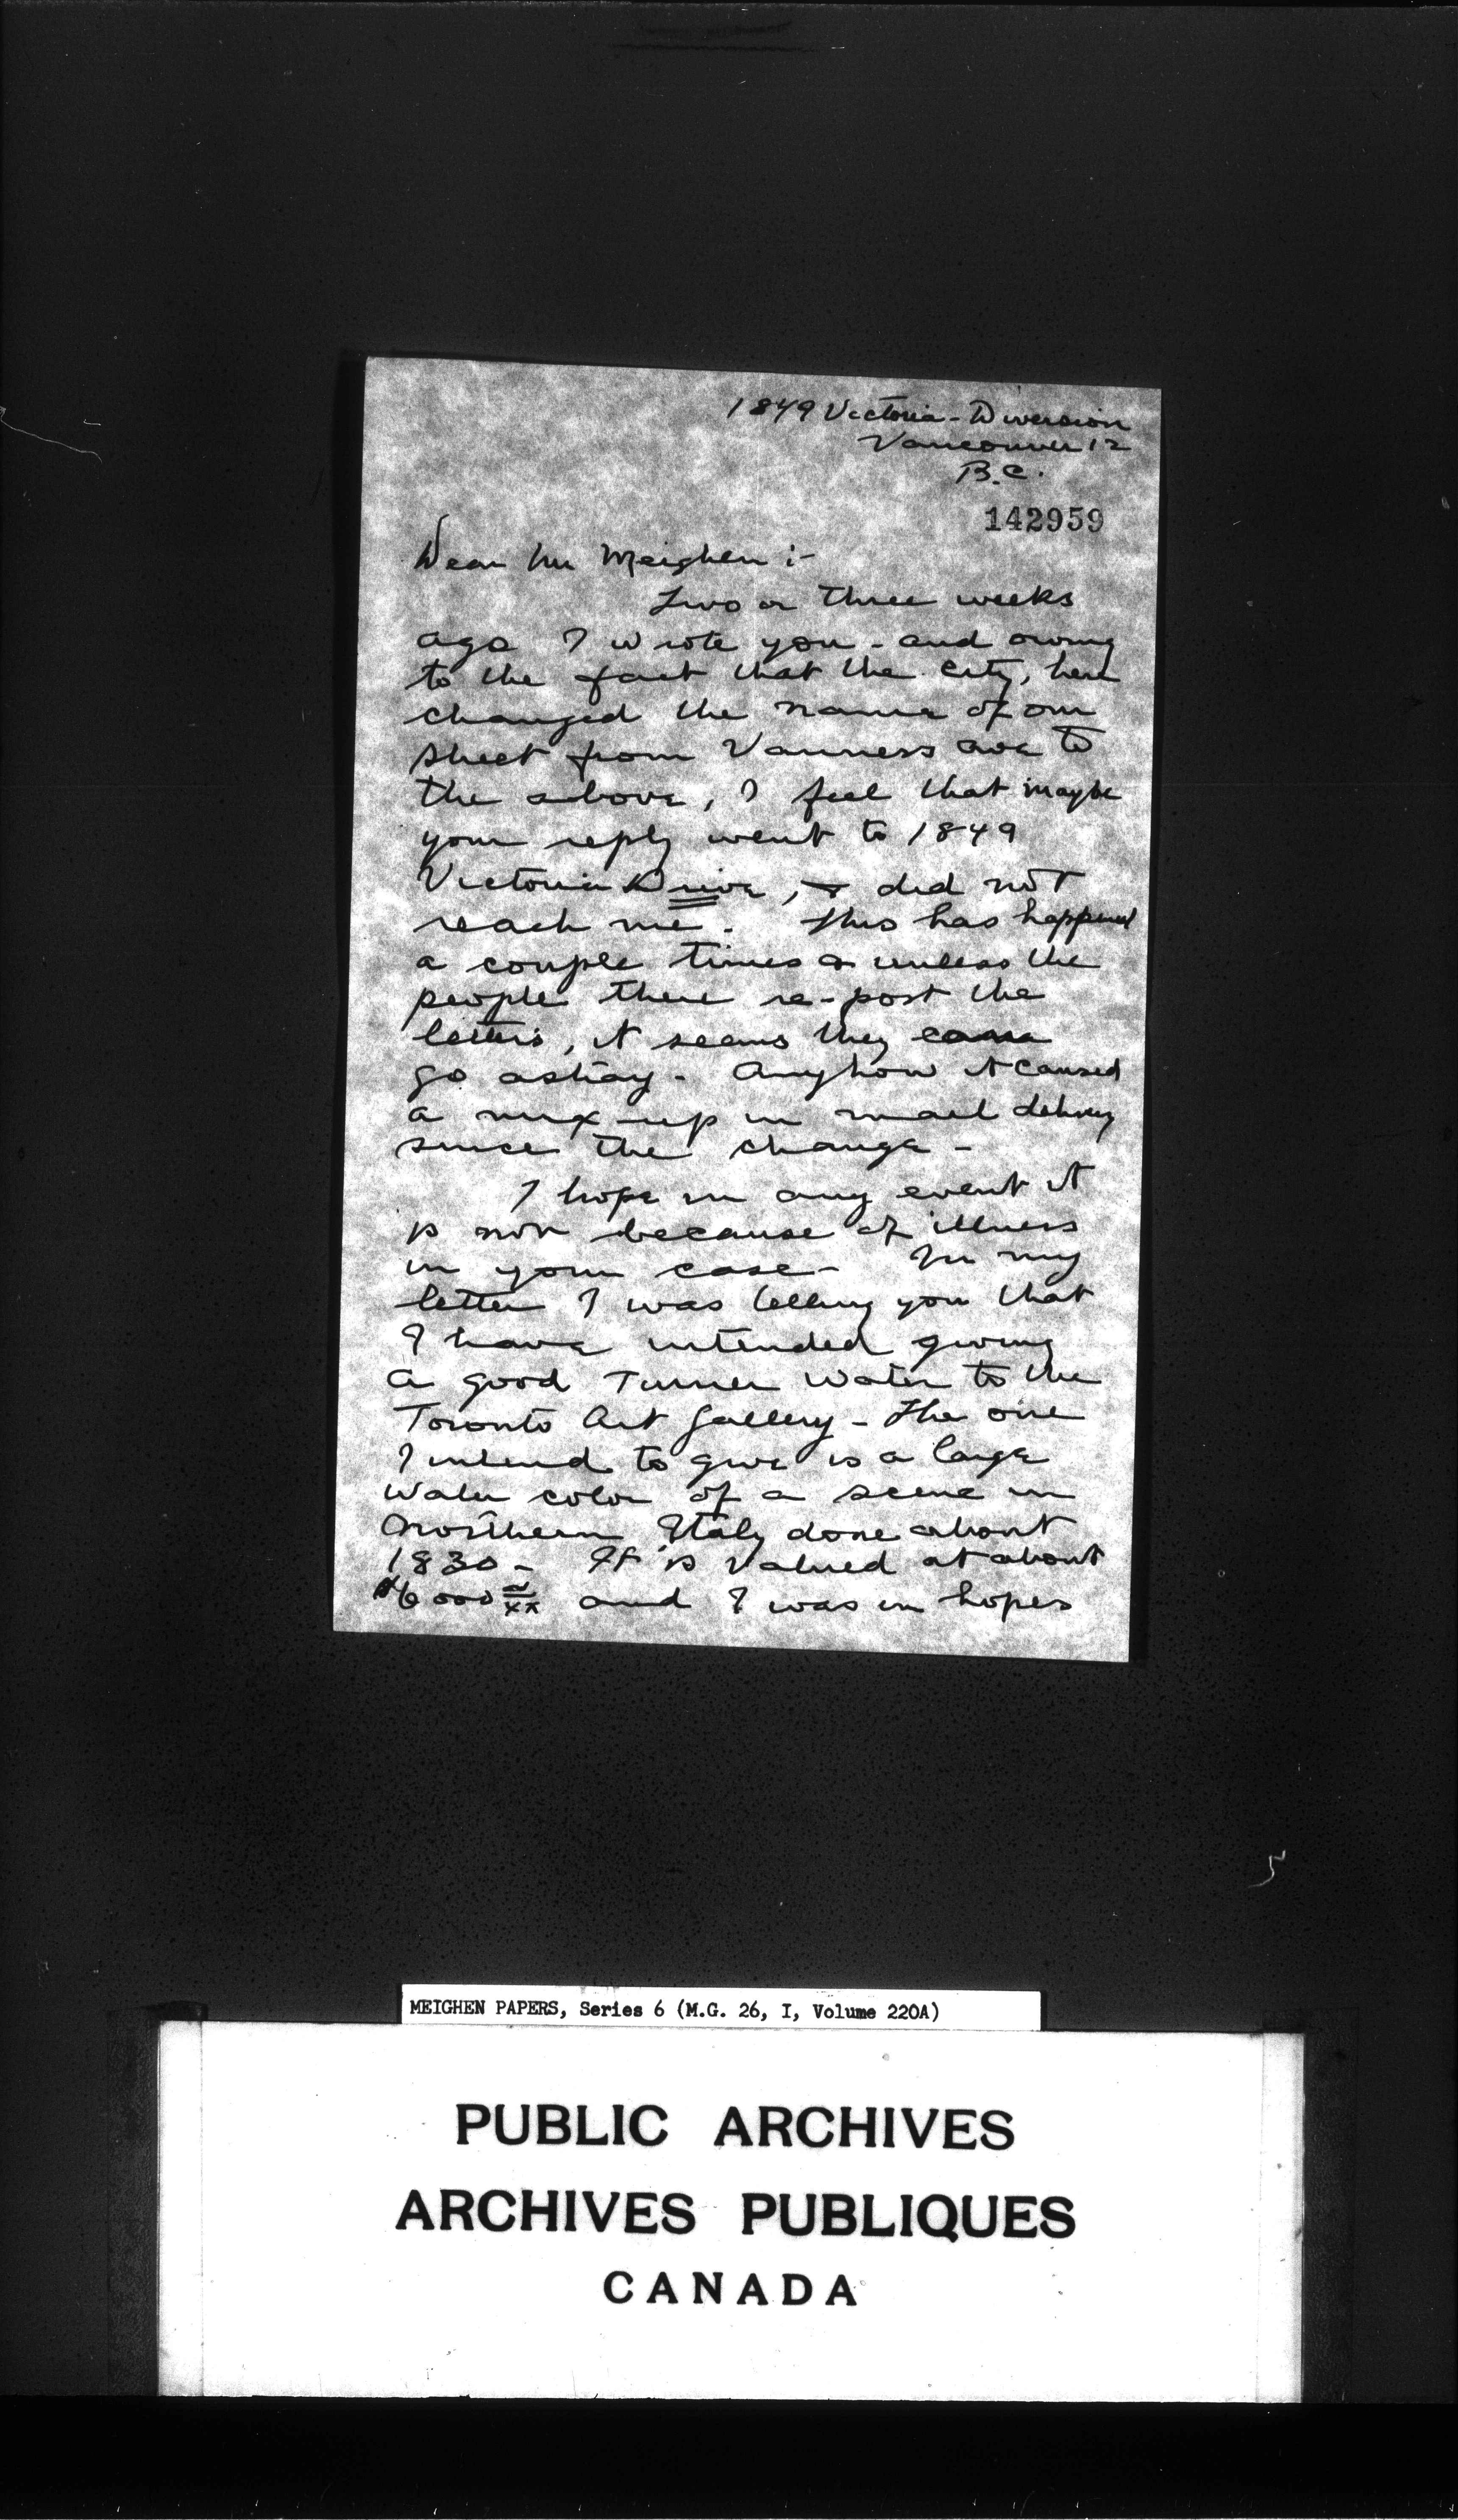 1849 Victoria - Diversion
Vancouver 12
B.C.
142959
Dear Mr Meighen :-
Two or three weeks
ago I wrote you - and owing
to the fact that the City, here
changed the name of our
street from Vanness ave to
the above, I feel that maybe
your reply went to 1849
Victoria Drive, & did not
reach me. This has happened
a couple times & unless the
people there re-post the
letters, it seems they
go astray - Anyhow it caused
a mix-up in mail delivery
since the change -
I hope in any event it
is not because of illness
in your case - In my
letter I was telling you that
I have intended giving
a good Turner Water to the
Toronto Art Gallery - The one
I intend to give is a large
Water color of a scene in
Northern Italy done about
1830 - It is valued at about
$6000 and I was in hopes
MEIGHEN PAPERS, Series 6 (M.G. 26, I, Volume 220A)
PUBLIC ARCHIVES
ARCHIVES PUBLIQUES
CANADA